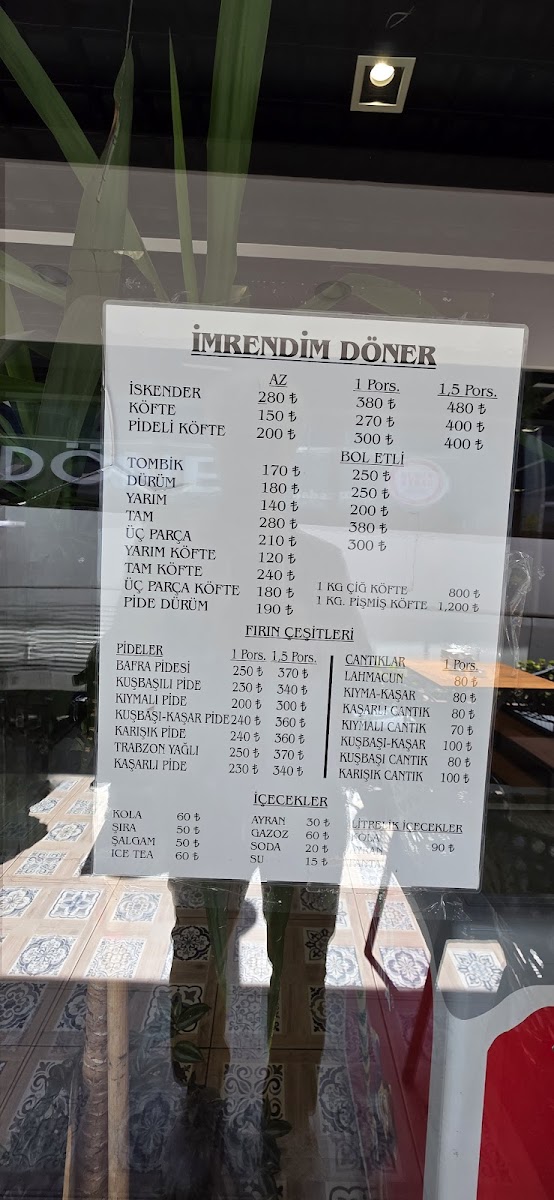 İMRENDİM DÖNER
AZ 1 Pors. 1,5 Pors.
İSKENDER 280 ₺ 380 ₺ 480 ₺
KÖFTE 150 ₺ 270 ₺ 400 ₺
PİDELİ KÖFTE 200 ₺ 300 ₺ 400 ₺
BOL ETLİ
TOMBİK 170 ₺ 250 ₺
DÜRÜM 180 ₺ 250 ₺
YARIM 140 ₺ 200 ₺
TAM 280 ₺ 380 ₺
ÜÇ PARÇA 210 ₺ 300 ₺
YARIM KÖFTE 120 ₺
TAM KÖFTE 240 ₺
ÜÇ PARÇA KÖFTE 180 ₺ 1 KG ÇİĞ KÖFTE 800 ₺
PİDE DÜRÜM 190 ₺ 1 KG. PİŞMİŞ KÖFTE 1,200 ₺
FIRIN ÇEŞİTLERİ
PİDELER 1 Pors. 1,5 Pors.
BAFRA PİDESİ 250 ₺ 370 ₺
KUŞBAŞILI PİDE 230 ₺ 340 ₺
KIYMALI PİDE 200 ₺ 300 ₺
KUŞBAŞI-KAŞAR PİDE 240 ₺ 360 ₺
KARIŞIK PİDE 240 ₺ 360 ₺
TRABZON YAĞLI 250 ₺ 370 ₺
KAŞARLI PİDE 230 ₺ 340 ₺
CANTIKLAR 1 Pors.
LAHMACUN 80 ₺
KIYMA-KAŞAR 80 ₺
KAŞARLI CANTIK 80 ₺
KIYMALI CANTIK 70 ₺
KUŞBAŞI-KAŞAR 100 ₺
KUŞBAŞI CANTIK 80 ₺
KARIŞIK CANTIK 100 ₺
İÇECEKLER
KOLA 60 ₺
ŞIRA 50 ₺
ŞALGAM 50 ₺
ICE TEA 60 ₺
AYRAN 30 ₺
GAZOZ 60 ₺
SODA 20 ₺
SU 15 ₺
LİTRELİK İÇECEKLER
KOLA
90 ₺
DÖNE